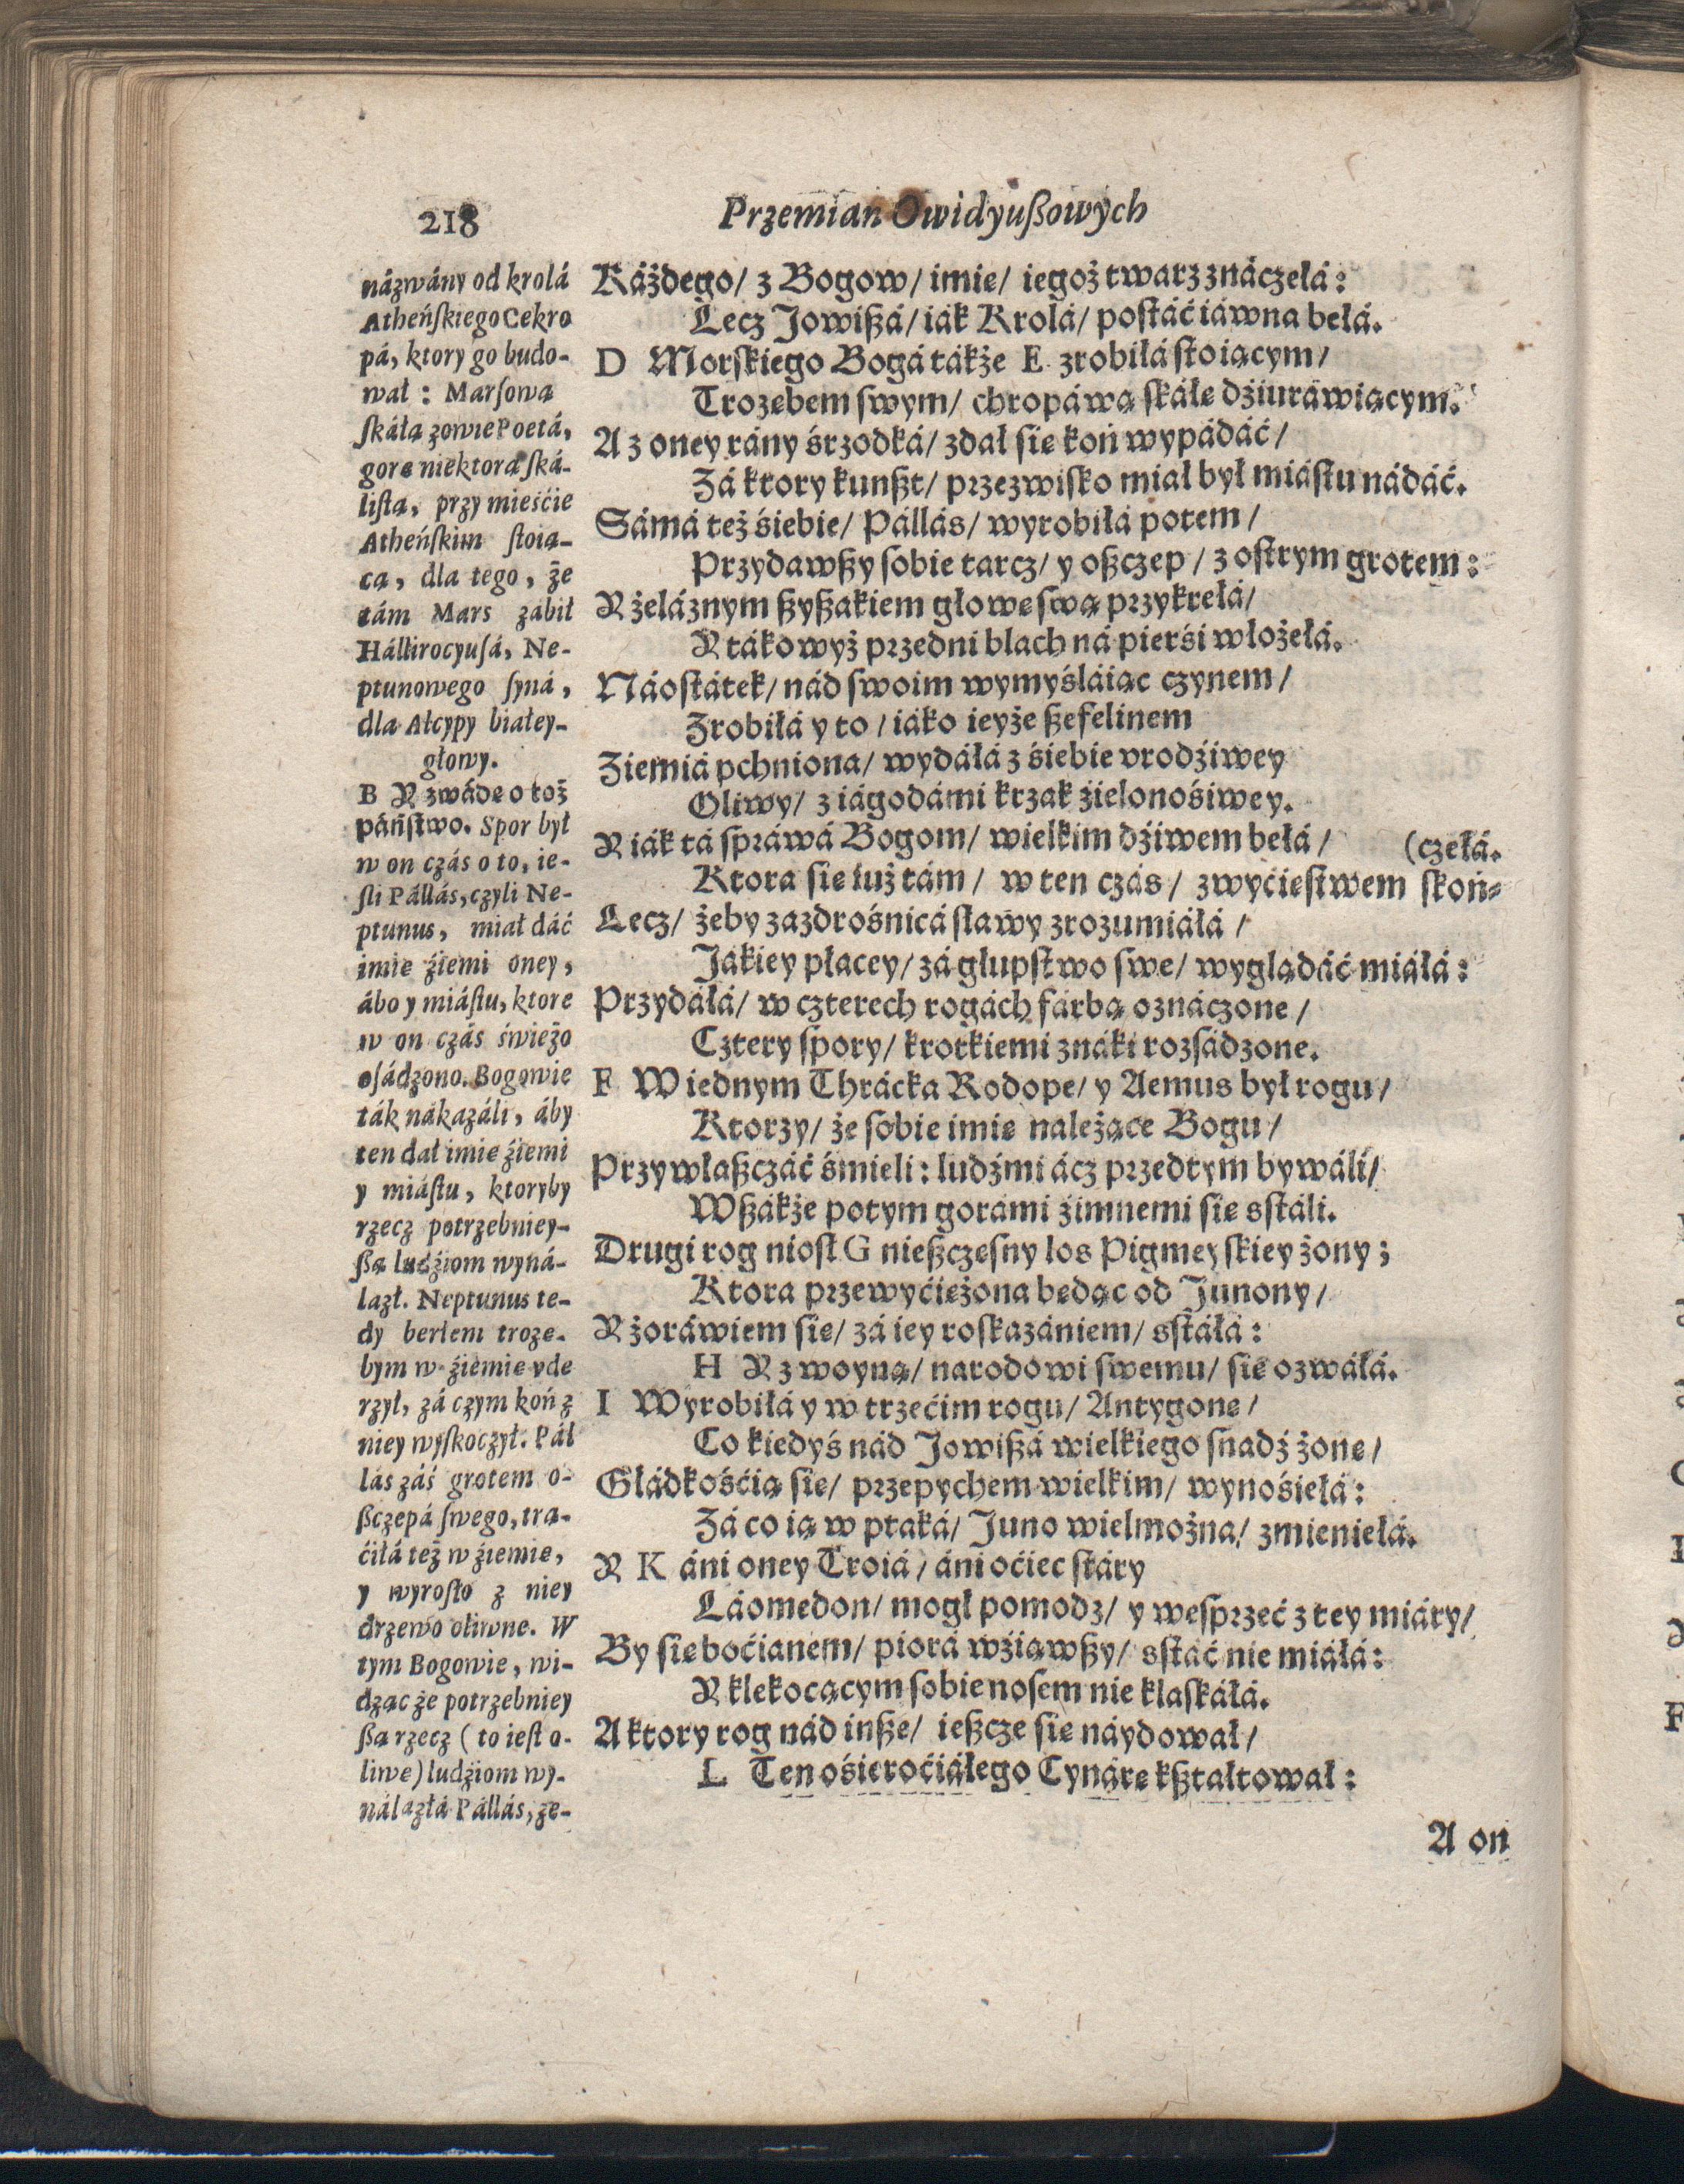 218
Przemian Owidyußowych
názwány od krolá
Atheńſkiego Cekro
pá, ktory go budo-
wał : Marſową
ſkáłą zowie Poetá,
gorę niektorą ſká-
liſtą, przy mieśćie
Atheńſkim ſtoią-
cą, dla tego, że
tám Mars zábił
Hállirocyuſá, Ne-
ptunowego ſyná,
dla Alcypy białey-
głowy.
B Y zwádę o toż
páńſtwo. Spor był
w on czás o to, ie-
ſli Pállás, czyli Ne-
ptunus, miał dáć
imię źiemi oney,
ábo y miáſtu, ktore
w on czás świeżo
oſádzono. Bogowie
ták nákazáli, áby
ten dał imię źiemi
y miáſtu, ktoryby
rzecz potrzebniey-
ßą ludźiom wyná-
lazł. Neptunus te-
dy berłem troze-
bym w źiemię vde
rzył, zá czym koń z
niey wyſkoczył. Pál
lás záś grotem o-
ßczepá ſwego, trą-
ćiłá też w źiemię,
y wyroſło z niey
drzewo oliwne. W
tym Bogowie, wi-
dząc że potrzebniey
ßą rzecz ( to ieſt o-
liwę ) ludźiom wy-
nálazłá Pállás, ze-
Káżdego/ z Bogow/ imię/ iegoż twarz znáczełá:
Lecz Jowißá/ iák Krolá/ poſtáć iáwna bełá.
D Morſkiego Bogá tákże E zrobiłá ſtoiącym/
Trozębem ſwym/ chropáwą ſkáłę dźiuráwiącym.
A z oney rány śrzodká/ zdał ſię koń wypádáć/
Zá ktory kunßt/ przezwiſko miał był miáſtu nádáć.
Sámá też śiebie/ Pállás/ wyrobiłá potem/
Przydawßy ſobie tarcz/ y oßczep/ z oſtrym grotem:
Y żeláznym ßyßakiem głowę ſwą przykrełá/
Y tákowyż przedni blach ná pierśi włożełá.
Náoſtátek/ nád ſwoim wymyśláiąc czynem/
Zrobiłá y to/ iáko ieyże ßefelinem
Ziemiá pchniona/ wydáłá z śiebie vrodźiwey
Oliwy/ z iágodámi krzak źielonośiwey.
Y iák tá ſpráwá Bogom/ wielkim dźiwem bełá/
(czełá.
Ktora ſię iuż tám/ w ten czás/ zwyćięſtwem ſkoń-
Lecz/ żeby zazdrośnicá ſławy zrozumiáłá/
Jákiey płacey/ zá głupſtwo ſwe/ wyglądáć miáłá:
Przydáłá/ w czterech rogách fárbą oznáczone/
Cztery ſpory/ krotkiemi znáki rozſádzone.
F W iednym Thrácka Rodope/ y Aemus był rogu/
Ktorzy/ że ſobie imię należące Bogu/
Przywłaßczáć śmieli: ludźmi ácz przedtym bywáli/
Wßákże potym gorámi źimnemi ſię sſtáli.
Drugi rog nioſł G nießczeſny los Pigmeyſkiey żony;
Ktora przewyćiężona będąc od Junony/
Y żoráwiem ſię/ zá iey roſkazániem/ sſtáłá:
H Y z woyną/ narodowi ſwemu/ ſię ozwáłá.
I Wyrobiłá y w trzećim rogu/ Antygonę/
Co kiedyś nád Jowißá wielkiego ſnadź żonę/
Gładkośćią ſię/ przepychem wielkim/ wynośiełá:
Zá co ią w ptaká/ Juno wielmożna/ zmieniełá.
Y K áni oney Troiá/ áni oćiec ſtáry
Láomedon/ mogł pomodz/ y weſprzeć z tey miáry/
By ſię boćianem/ piorá wźiąwßy/ sſtáć nie miáłá:
Y klekocącym ſobie noſem nie klaſkáłá.
A ktory rog nád inße/ ießcze ſię náydował/
L Ten ośieroćiáłego Cynárę kßtałtował:
A on